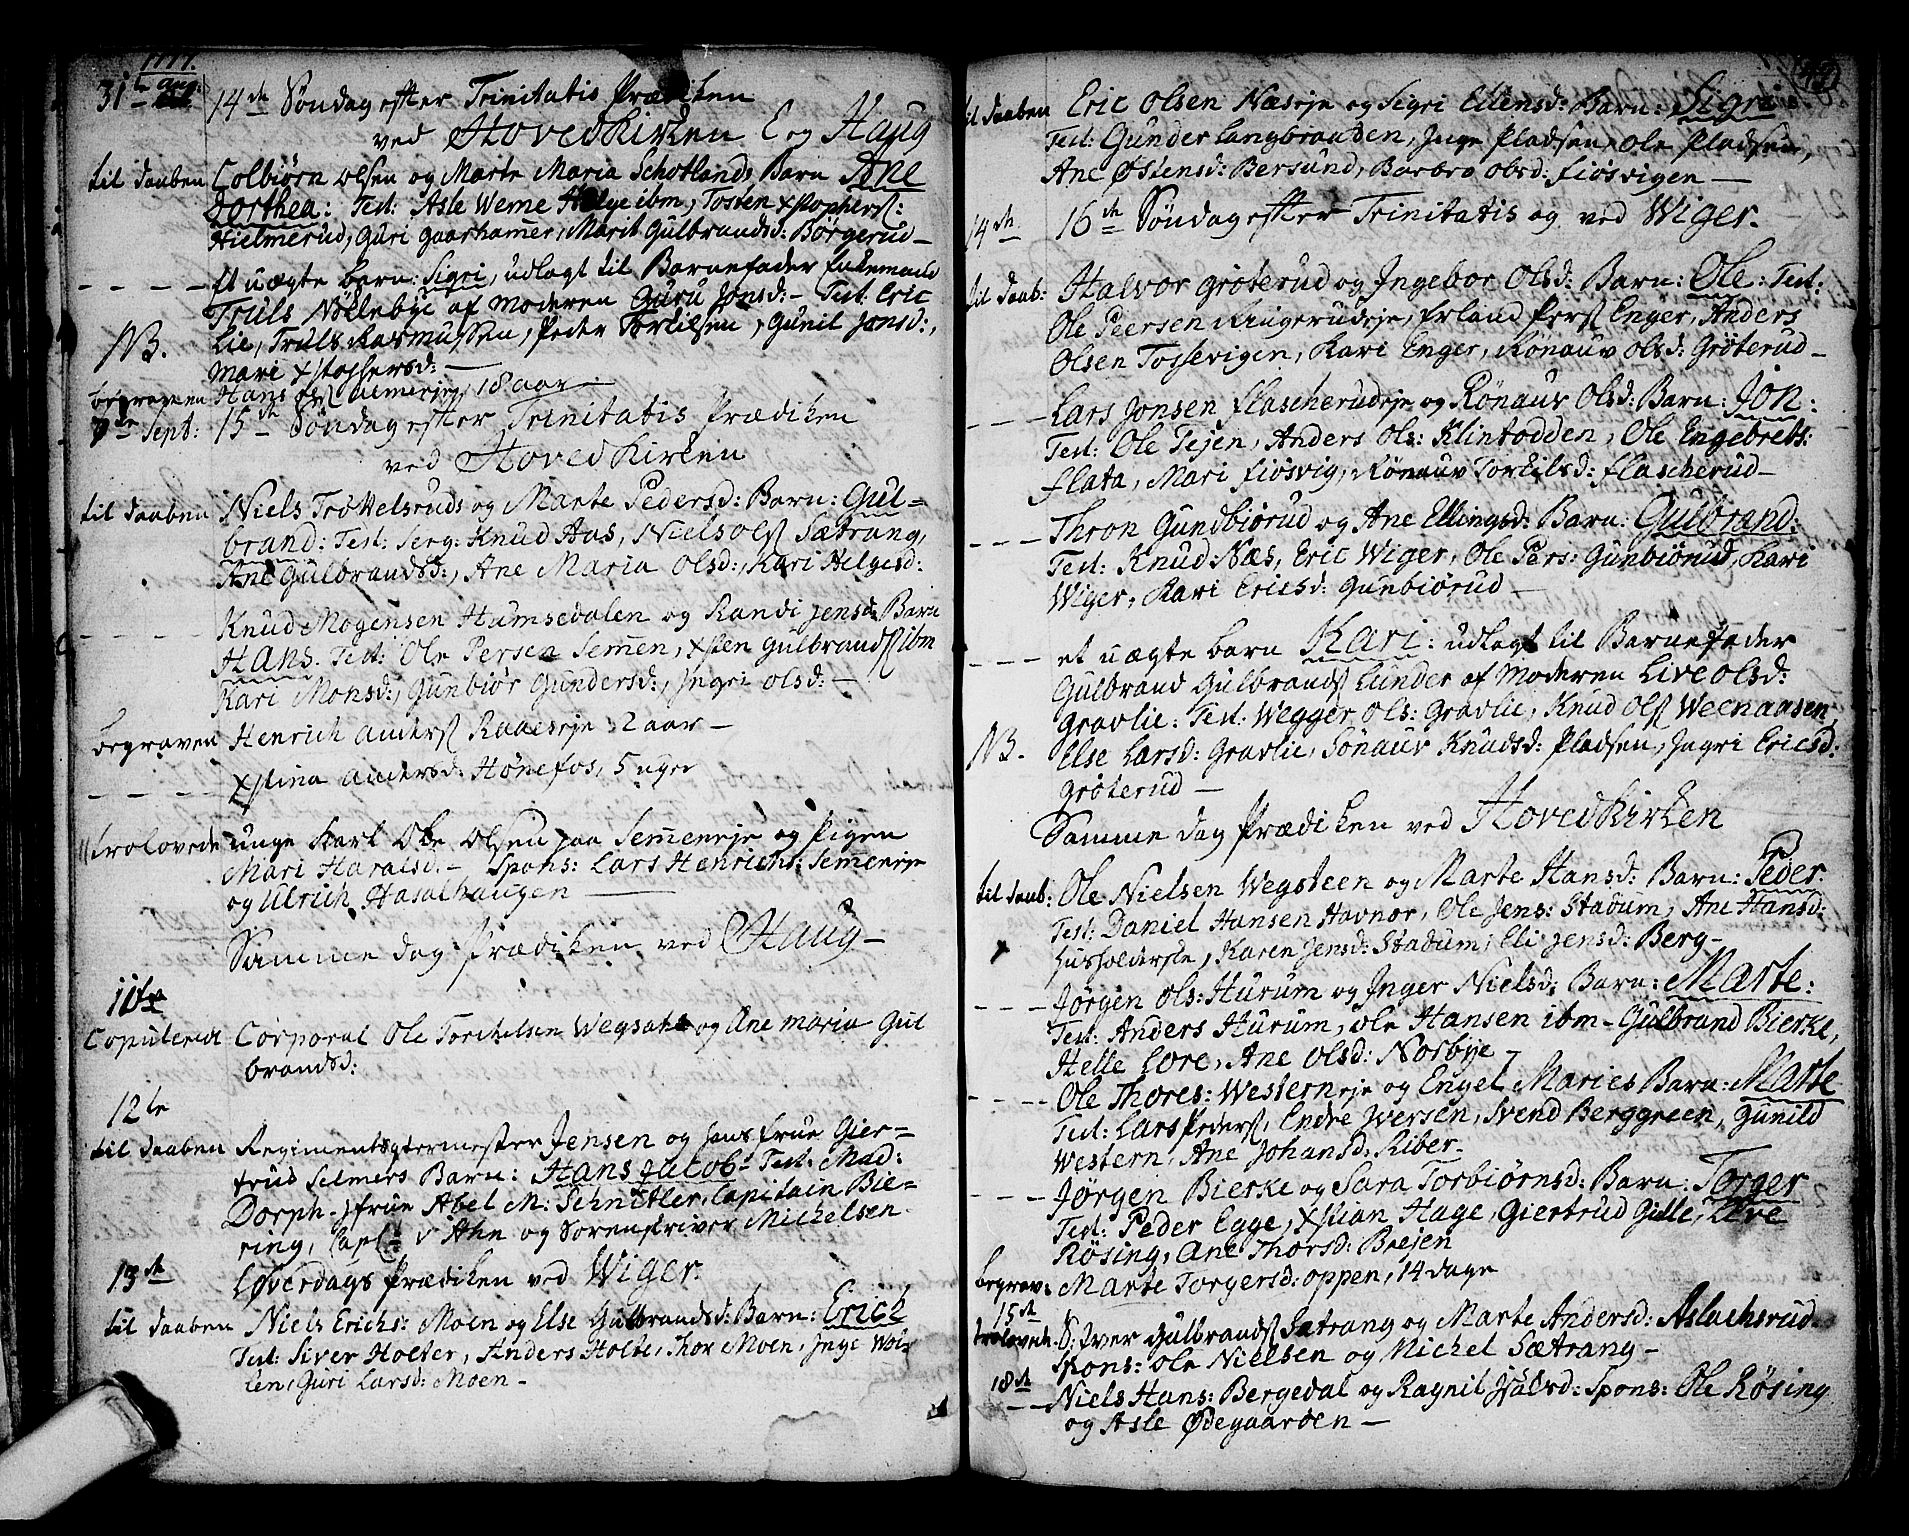 1777.
31te Aug: 14de Søndag efter Trinitatis Prædiken
ved Hovedkirken E og Haug
til daaben Colbiørn olsen og Marte Maria Schotlands Barn Ane
Dorthea: Test: Asle Weme Helge ibm, Tosten Xstophers:
Hielmerud, Guri Gaarhamer, Marit Gulbrandsd: Børgerud –
– – – – et uægte barn: Sigri, udlagt til Barnefader Enkemand
Truls Nølebye af moderen Guru Jonsd: – Test: Eric
NB. Lie, Truls Rasmussen, Peder Torkilsen, Gunil Jonsd:,
Mari Xstophersd: –
begraven Hans ols Almerje, 18 aar
7de Sept: 15de Søndag efter Trinitatis Prædiken
ved Hovedkirken
til daaben Niels Trøttelsruds og Marte Pedersd: Barn: Gul=
brand: Test: Serg: Knud Aas, Niels ols Sætrang,
Ane Gulbrandsd:, Ane Maria olsd:, Kari Helgesd:
– – – – Knud Mogensen Humsedalen og Randi Jensd: Barn
Hans. Test: Ole Persen Semen, Xsten Gulbrands ibm
Kari Monsd:, Gunbiør Gundersd:, Jngri olsd: –
begraven Henrich Anders Raaeseje 2 aar –
– – – – Xstina Andersd: Hønefos, 5 uger
trolovede unge karl Ole Olsen paa Semeneje og Pigen
Mari Haraldsd. – Spons: Lars Henrichs: Semeneje
og Ulrich Hasalhaugen –
Samme dag Prædiken ved Haug –
10de
Copulerede Corporal Ole Torchelsen Wegsahl og Ane maria Gul
brandsd:
12te
til daaben Regimentsqtermester Jensen og hans frue Gier=
trud Selmers Barn: Hans Jacob – Test: Mad:
Dorph – frue Abel M: Schnitler, Capitain Bie=
ring, Cap: v Ahn og Sorenskriver Michelsen
13de Løverdags Prædiken ved Wiger.
til daaben Niels Erichs: Moen og Else Gulbrandsd: Barn: Erich
Test: Siver Holter, Anders Holte, Thor Moen, Inge Wol=
len, Guri Larsd: Moen –
til daaben Eric Olsen Næseje og Sigri Ellensd: Barn: Sigri.
Test: Gunder Langbraaden, Inge Pladsen, Ole Pladsen,
Ane Østensd: Bersund, Barbro olsd: Fiøsvigen –
14de 16de Søndag efter Trinitatis og ved Wiger.
til daab: Halvor Grøterud og Ingebor Olsd: Barn: Ole: Test:
Ole Peersen Ringerudeje, Erland Pers Enger, Anders
Olsen Tossevigen, Kari Enger, Rønauv olsd: Grøterud –
– – – Lars Jonsen Flascherudeje og Rønauv Olsd: Barn: Jon:
Test: Ole Tejen, Anders Ols: Klintodden, Ole Engebrets:
Flata, Mari Fiøsvig, Rønauv Torkilsd: Flascherud –
– – – Thron Gundbiørud og Ane Ellingsd: Barn: Gulbrand:
Test: Knud Næs, Eric Wiger, Ole Pers: Gunbiørud, Kari
Wiger, Kari Ericsd: Gunbiørud –
– – – et uægte barn Kari: udlagt til Barnefader
Gulbrand Gulbrands Lunder af Moderen Live olsd:
Gravlie: Test: Wegger Ols: Gravlie, Knud Ols Weenaasen,
NB. Else Larsd: Gravlie, Sønauv Knudsd: Pladsen, Jngri Ericsd:
Grøterud –
Samme dag Prædiken ved Hovedkirken
til daab: Ole Nielsen Wegsteen og Marte Hansd: Barn: Peder
Test: Daniel Hansen Havnor, Ole Jens: Stadum, Ane Hansd:
Husholderske, Karen Jensd: Stadum, Eli Jensd: Berg –
– – – Jørgen Ols: Hurum og Inger Nielsd: Barn: Marte:
Test: Anders Hurum, Ole Hansen ibm – Gulbrand Bierke,
Helle Lore, Ane Olsd: Norbye –
– – – Ole Thores: Westerneje og Engel Maries Barn: Marte
Test: Lars Peders, Endre Iversen, Svend Berggreen, Gunild
Western, Ane Johansd: Riber –
– – – Jørgen Bierke og Sara Torbiørnsd: Barn: Torger
Test: Peder Egge, Xstian Hage, Giertrud Gille, Live
Røsing, Ane Thorsd: Brejen
begrav: Marte Torgersd: oppen, 14 dage
15de
trolovede S: Iver Gulbrands Sætrang og Marte Andersd: Aslachsrud
Spons: Ole Nielsen og Michel Sætrang –
18de
– – Niels Hans: Bergedal og Ragnil Halvd: Spons: Ole Røsing
og Asle Ødegaarden –